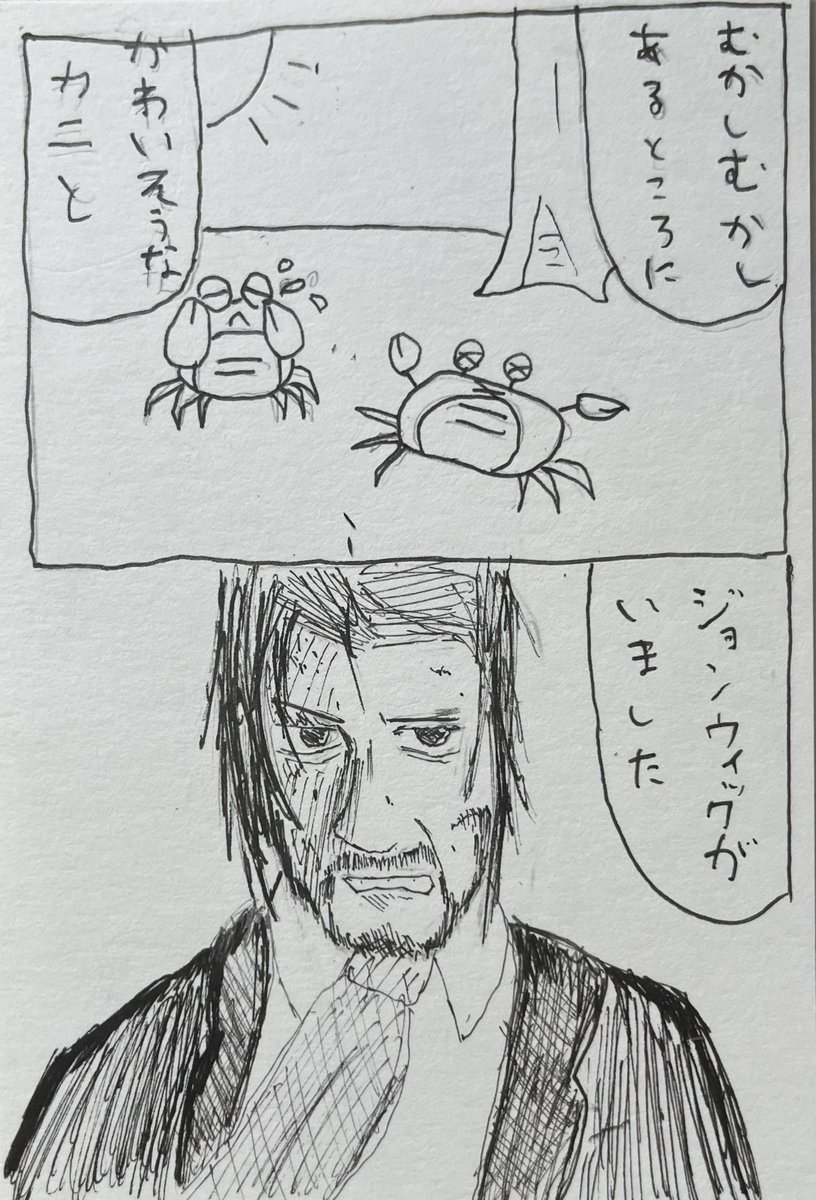 むかしむかし
あるところに
かわいそうな
カニと
ジョンウィックが
いました